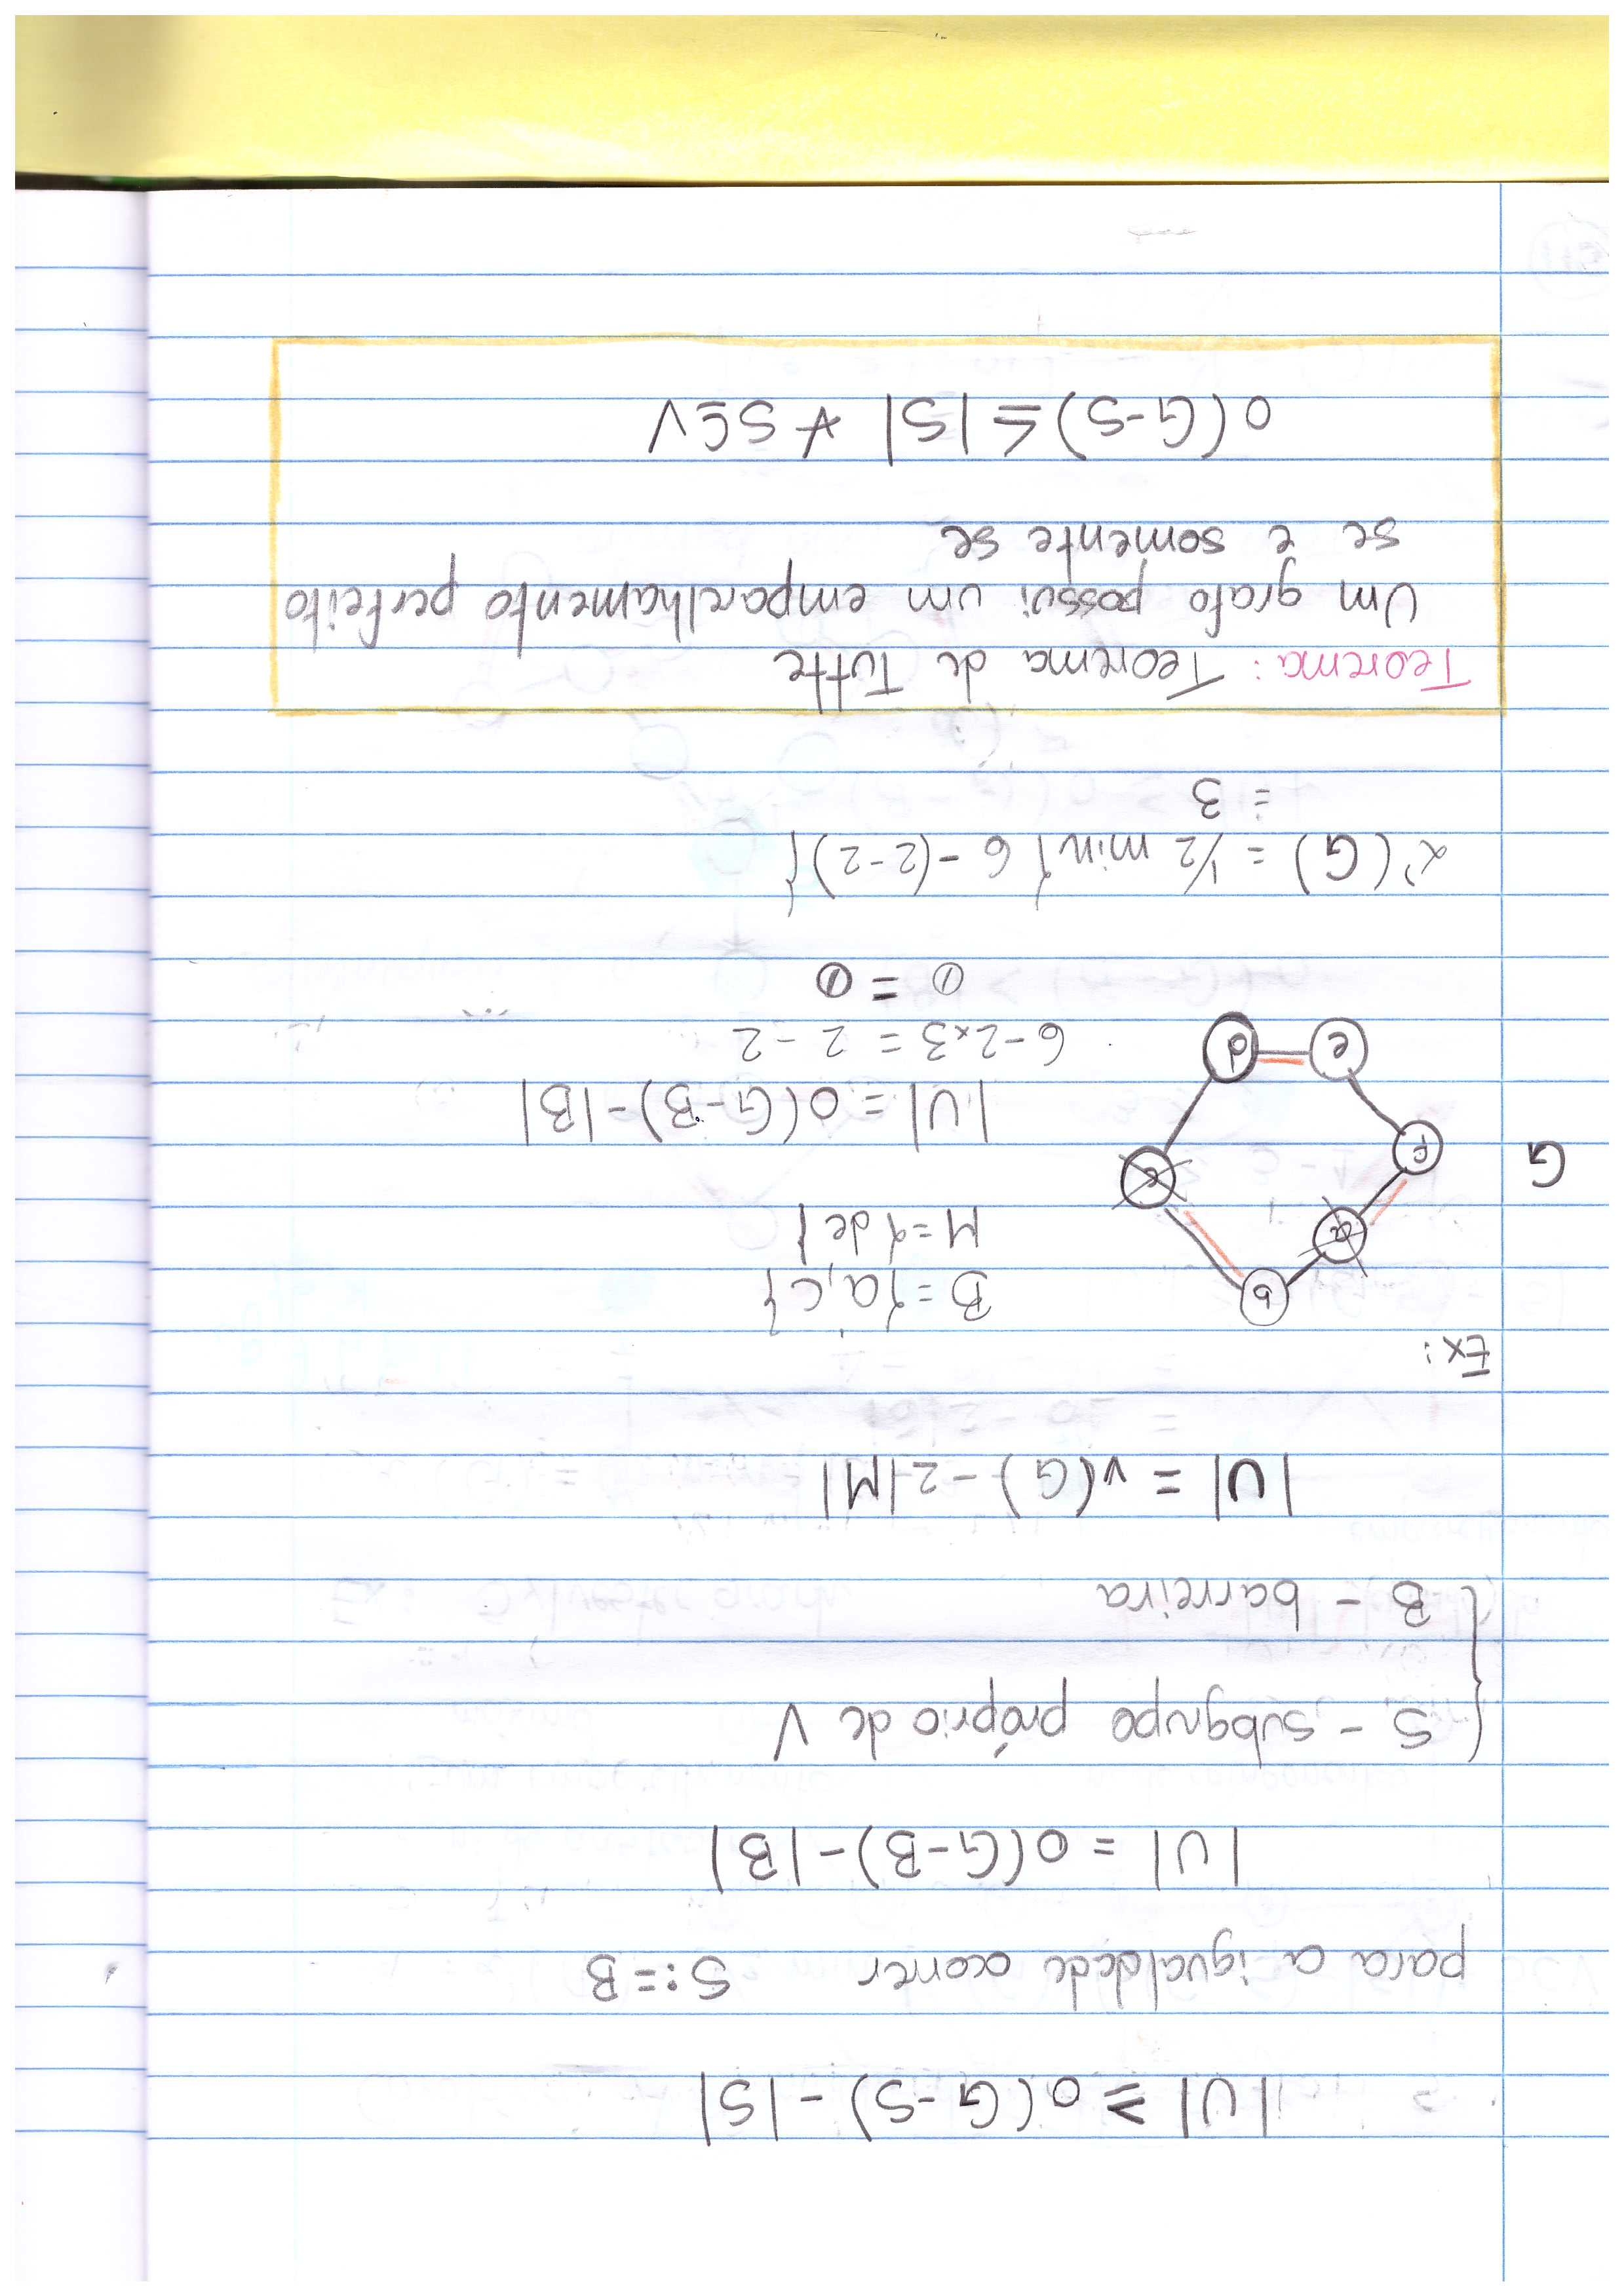 |U| ≥ o(G-S) - |S|
para a igualdade ocorrer S:=B
|U| = o(G-B) - |B|
S - subgrupo próprio de V
B - barreira
|U| = v(G) - 2|M|
Ex:
b
a
c
f
e
d
G
B = {a,c}
M = {de}
|U| = o(G-B) - |B|
6 - 2x3 = 2 - 2
0 = 0
α'(G) = 1/2 min{ 6 - (2-2)}
= 3
Teorema: Teorema de Tutte
Um grafo possui um emparelhamento perfeito
se e somente se
o(G-S) ≤ |S| ∀ S ⊆ V